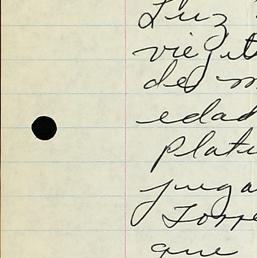 Luz
viejit
de m
edad
plati
juga
Torre
que